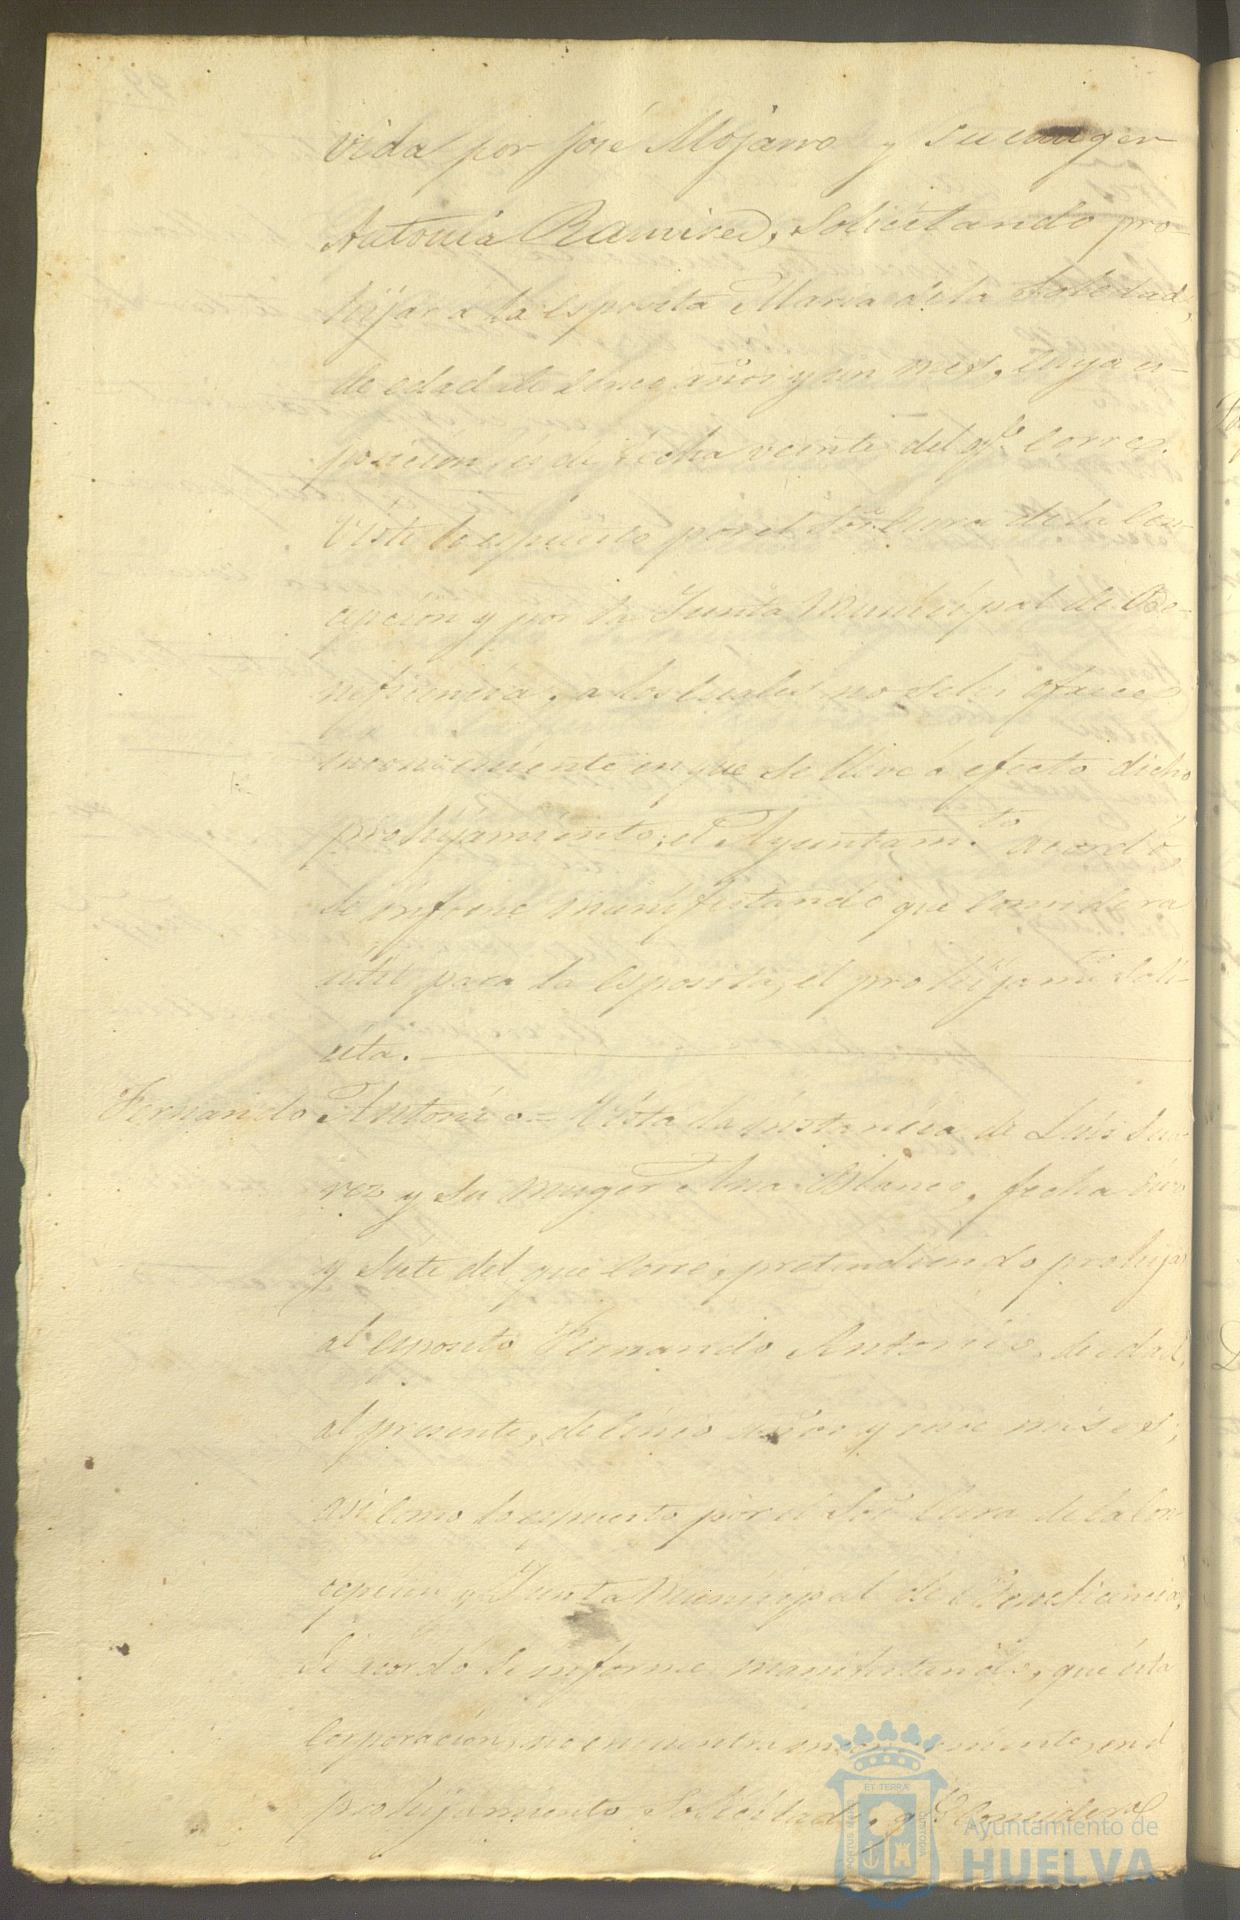 vida por José Mojarro y su muger
Antonia Ramirez, Solicitando pro-
hijar a la esposita Maria de la Soledad,
de edad de años y un mes, cuya es-
posicion, es de fecha veinte del qe. corre.
Visto lo espuesto por el Sor. Cura de la Con-
cepción y por la Junta Municipal de Be-
neficencia, a los cuales no se les ofrece
inconveniente en que se lleve á efecto dicho
prohijamiento; el Ayuntamto. acordó
se informe manifestando que considera
útil para la esposita, el prohijamto. soli-
cita.
Fernando Antonio = Vista la instancia de Luis Sua-
rez y su muger Ana Blanco, fecha
y siete del que corre, pretendiendo prohijar
al esposito Fernando Antonio, de edad,
al presente, de cinco años y once meses;
asi como lo espuesto por el Sor. Cura de la Con-
cepcion y Junta Municipal de Beneficencia,
se acordó se informe manifestando, que esta
Corporación, no encuentra inconveniente, en el
prohijamiento solicitado, qe. considera
ET TERRÆ
Ayuntamiento de
HUELVA